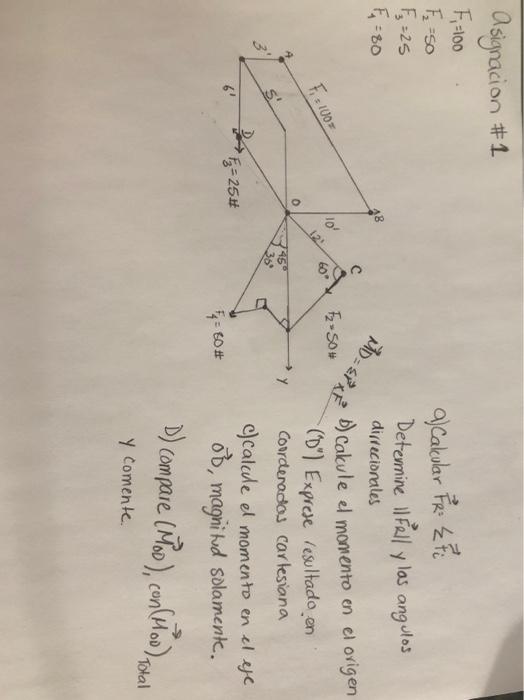 Asignacion #1
F₁=100
F₂=50
F₃=25
F₄=80
A
3'
F₁=100#
5'
6'
D
F₃=25#
B
10'
O
12'
C
60°
F₂=50#
45°
30°
F₄=80#
Y
a) Calcular F⃗R = Σ F⃗i
Determine ||F⃗R|| y los angulos
dirrecionales
b) Calcule el momento en el origen
("D") Exprese resultado en
coordenadas cartesiana
c) Calcule el momento en el eje
O⃗D, magnitud solamente.
D) Compare (M⃗OD), con (M⃗OD) Total
y comente.